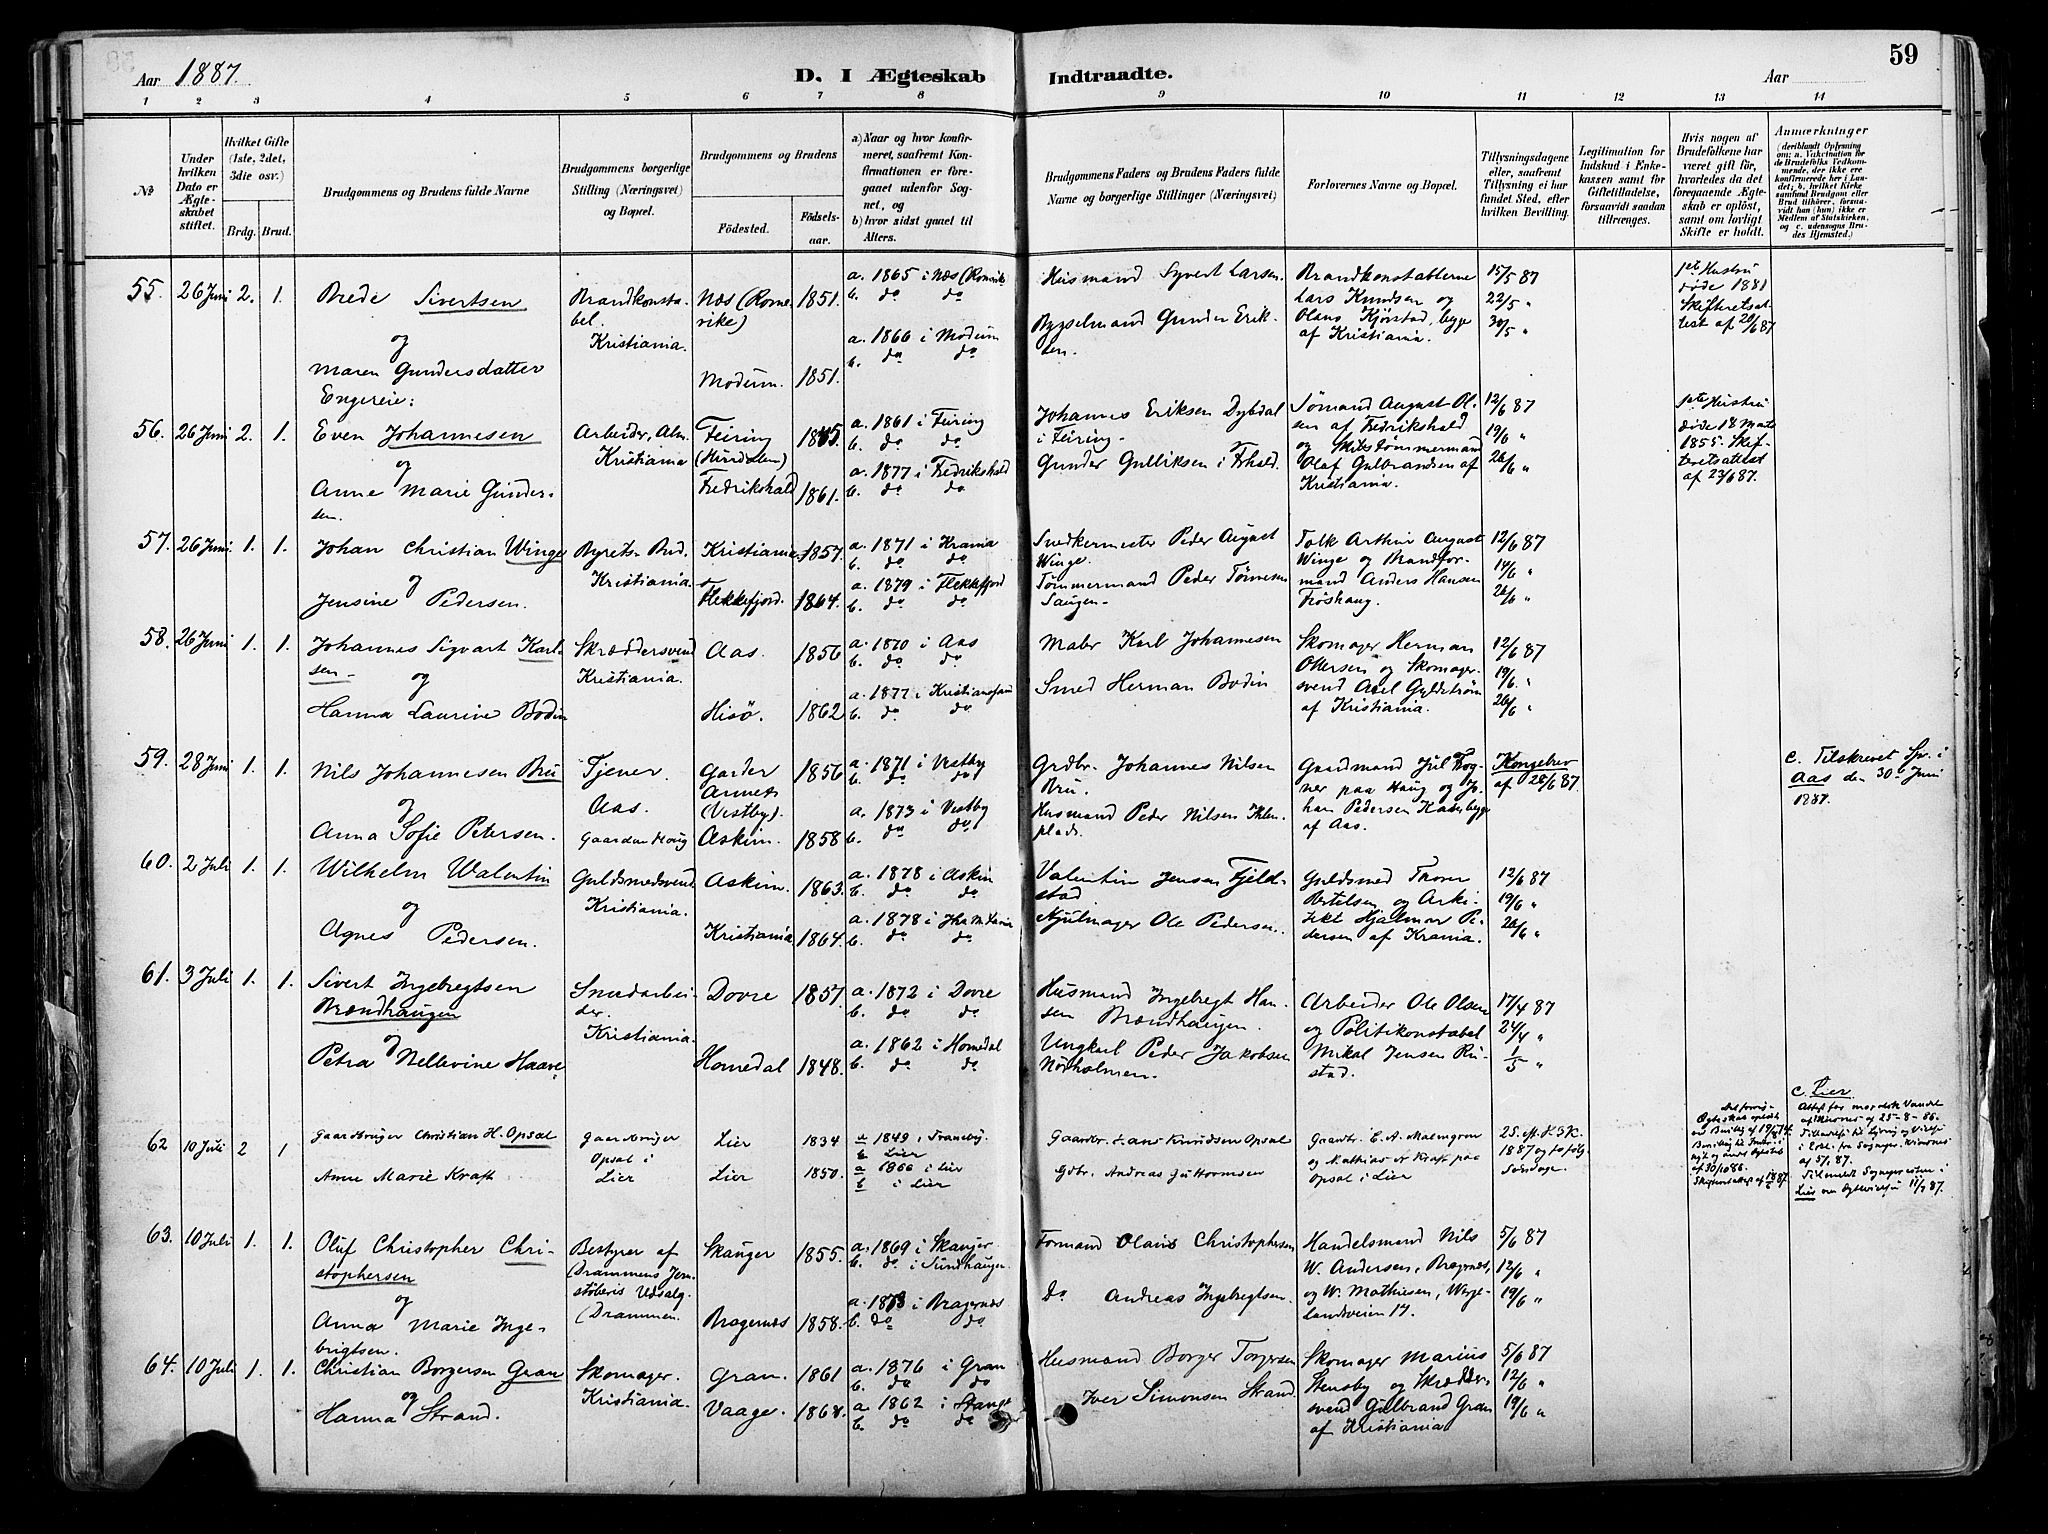 59
Aar 1887.
D. I Ægteskab Indtraadte.
Aar
1 2 3 4 5 6 7 8 9 10 11 12 13 14
No
Under hvilken Dato er Ægteskabet stiftet.
Hvilket Gifte (1ste, 2det, 3die osv.)
Brdg. Brud.
Brudgommens og Brudens fulde Navne
Brudgommens borgerlige Stilling (Næringsvei) og Bopæl.
Brudgommens og Brudens
Fødested. Fødselsaar.
a) Naar og hvor konfirmeret, saafremt Konfirmationen er foregaaet udenfor Sognet, og
b) hvor sidst gaaet til Alters.
Brudgommens Faders og Brudens Faders fulde Navne og borgerlige Stillinger (Næringsvei)
Forlovernes Navne og Bopæl.
Tillysningsdagene eller, saafremt Tillysning ei har fundet Sted, efter hvilken Bevilling.
Legitimation for Indskud i Enkekassen samt for Giftetilladelse, forsaavidt saadan tiltrænges.
Hvis nogen af Brudefolkene har været gift før, hvorledes da det foregaaende Ægteskab er opløst, samt om lovligt Skifte er holdt.
Anmærkninger (deriblandt Oplysning om: a. Vakcination for de Brudefolks Vedkommende, der ikke ere konfirmerede her i Landet; b. hvilket Kirkesamfund Brudgom eller Brud tilhører, forsaavidt han (hun) ikke er Medlem af Statskirken, og c. udensogns Brudes Hjemsted.)
55. 26 Juni 2. 1.
Brede Sivertsen
og
Maren Gundersdatter
Engereie:
Brandkonstabel.
Kristiania.
Næs (Romerike) 1851.
Modum. 1851.
a. 1865 i Næs (Romerik
b. do do
a. 1866 i Modum
b. do do
Husmand Syvert Larsen.
Bygselmand Gunder Eriksen.
Brandkonstablerne
Lars Knudsen og
Olaus Kjørstad, begge
af Kristiania.
15/5 87
22/5 "
30/5 "
1ste Hustru
døde 1881
Skifteretsattest af 20/6 87
56. 26 Juni 2. 1.
Even Johannesen
og
Anne Marie Gundersen.
Arbeider, Alm.
Kristiania
Feiring
(Hurdalen) 1835.
Fredrikshald 1861.
a. 1861 i Feiring
b. do do
a. 1877 i Fredrikshald
b. do do
Johannes Eriksen Dybdal
i Feiring.
Gunder Gulliksen i Frhald.
Sømand August Olsen af Fredrikshald
og Skibstømmermand
Olaf Gulbrandsen af
Kristiania.
12/6 87
19/6 "
26/6 "
1ste Hustru
døde 18 Marts
1855. Skifteretsattest
af 23/6 87.
57. 26 Juni. 1. 1.
Johan Christian Winge
og
Jensine Pedersen.
Byrets-Bud.
Kristiania.
Kristiania 1857.
Flekkefjord. 1864.
a. 1871 i Krania
b. do do
a. 1879 i Flekkefjord
b. do do
Snedkermester Peder August
Winge.
Tømmermand Peder Tønnesen
Haugen.
Tolk Arthur August
Winge og Brandformand Anders Hansen
Frøshaug.
12/6 87
19/6 "
26/6 "
58. 26 Juni 1. 1.
Johannes Sigvart Karlsen
og
Hanna Laurine Bodin
Skræddersvend
Kristiania.
Aas. 1856
Hisø. 1862
a. 1870 i Aas
b. do do
a. 1877 i Kristianssand
b. do do
Maler Karl Johannesen
Smed Herman Bodin
Skomager Herman
Ottersen og Skomagersvend Axel Gyldstrøm
af Kristiania.
12/6 87
19/6 "
26/6 "
59. 28 Juni 1. 1.
Nils Johannesen Bru
og
Anna Sofie Petersen.
Tjener.
Aas.
Gaarden Houg
Garder
Annex
(Vestby). 1856
Askim. 1858
a. 1871 i Vestby
b. do do
a. 1873 i Vestby
b. do do
Grdbr. Johannes Nilsen
Bru.
Husmand Peder Nilsen
plads.
Gaardmand Jul
paa Haug og Johan Pedersen
af Aas.
Kongebrev
af 28/6 87.
c. Tilskrevet Spr. i
Aas den 30. Juni
1887.
60. 2 Juli 1. 1.
Wilhelm Walentin
og
Agnes Pedersen.
Guldsmedsvend
Kristiania.
Askim. 1863.
Kristiania 1864.
a. 1878 i Askim
b. do do
a. 1878 i
b. do do
Valentin Jensen Fjeldstad.
Hjulmager Ole Pedersen.
Guldsmed Thom
Bertelsen og Arkitekt Hjalmar Pedersen af Krania.
12/6 87
19/6 "
26/6 "
61. 3 Juli 1. 1.
Sivert Ingebregtsen
Brændhaugen
og
Petra Nellevine Haave
Smedarbeider.
Kristiania.
Dovre 1857.
Homedal 1848.
a. 1872 i Dovre
b. do do
a. 1862 i Homedal
b. do do
Husmand Ingebregt Hansen Brændhaugen.
Ungkarl Peder Jakobsen
Norholmen.
Arbeider Ole Olsen
og Politikonstabel
Mikal Jensen Rustad.
17/4 87
24/4 "
1/5 "
62 10 Juli 2 1
Gaardbruger Christian H. Opsal
Anne Marie Kraft
Gaardbruger
Opsal i
Lier
Lier 1834
Lier 1850.
a 1849 i Tranby
b Lier
a 1866 i Lier
b i Lier
Gaardbr. Hans Knudsen Opsal
Gdbr. Andreas Guttormsen
Gaardbr. E. A. Malmgran
og Mathias A Kraft paa
Opsal i Lier
1887 og to følg.
Søndage.
c. Lier
63. 10 Juli 1. 1.
Oluf Christopher Christophersen
og
Anna Marie Ingebrigtsen.
Bestyrer af
Drammens Jernstøberis Udsalg.
(Drammen.
Skauger 1855.
Bragernæs 1858.
a. 1869 i Skauger
b. do i Sundhaugen.
a. 1873 i Bragernæs
b. do do
Formand Olaus Christophersen
do Andreas Ingebregtsen.
Handelsmand Nils
W. Andersen, Bragernæs,
og W. Mathiesen, Wergelandsveien 17.
5/6 87
12/6 "
19/6 "
64. 10 Juli 1. 1.
Christian Borgersen Gran
og
Hanna Strand.
Skomager.
Kristiania.
Gran. 1861
Vaage. 1868.
a. 1876 i Gran
b. do do
a. 1862 i Stange
b. do do
Husmand Borger Torgersen
Iver Simonsen Strand.
Skomager Marius
Stensby og Skræddersvend Gulbrand Gran
af Kristiania
5/6 87
12/6 "
19/6 "